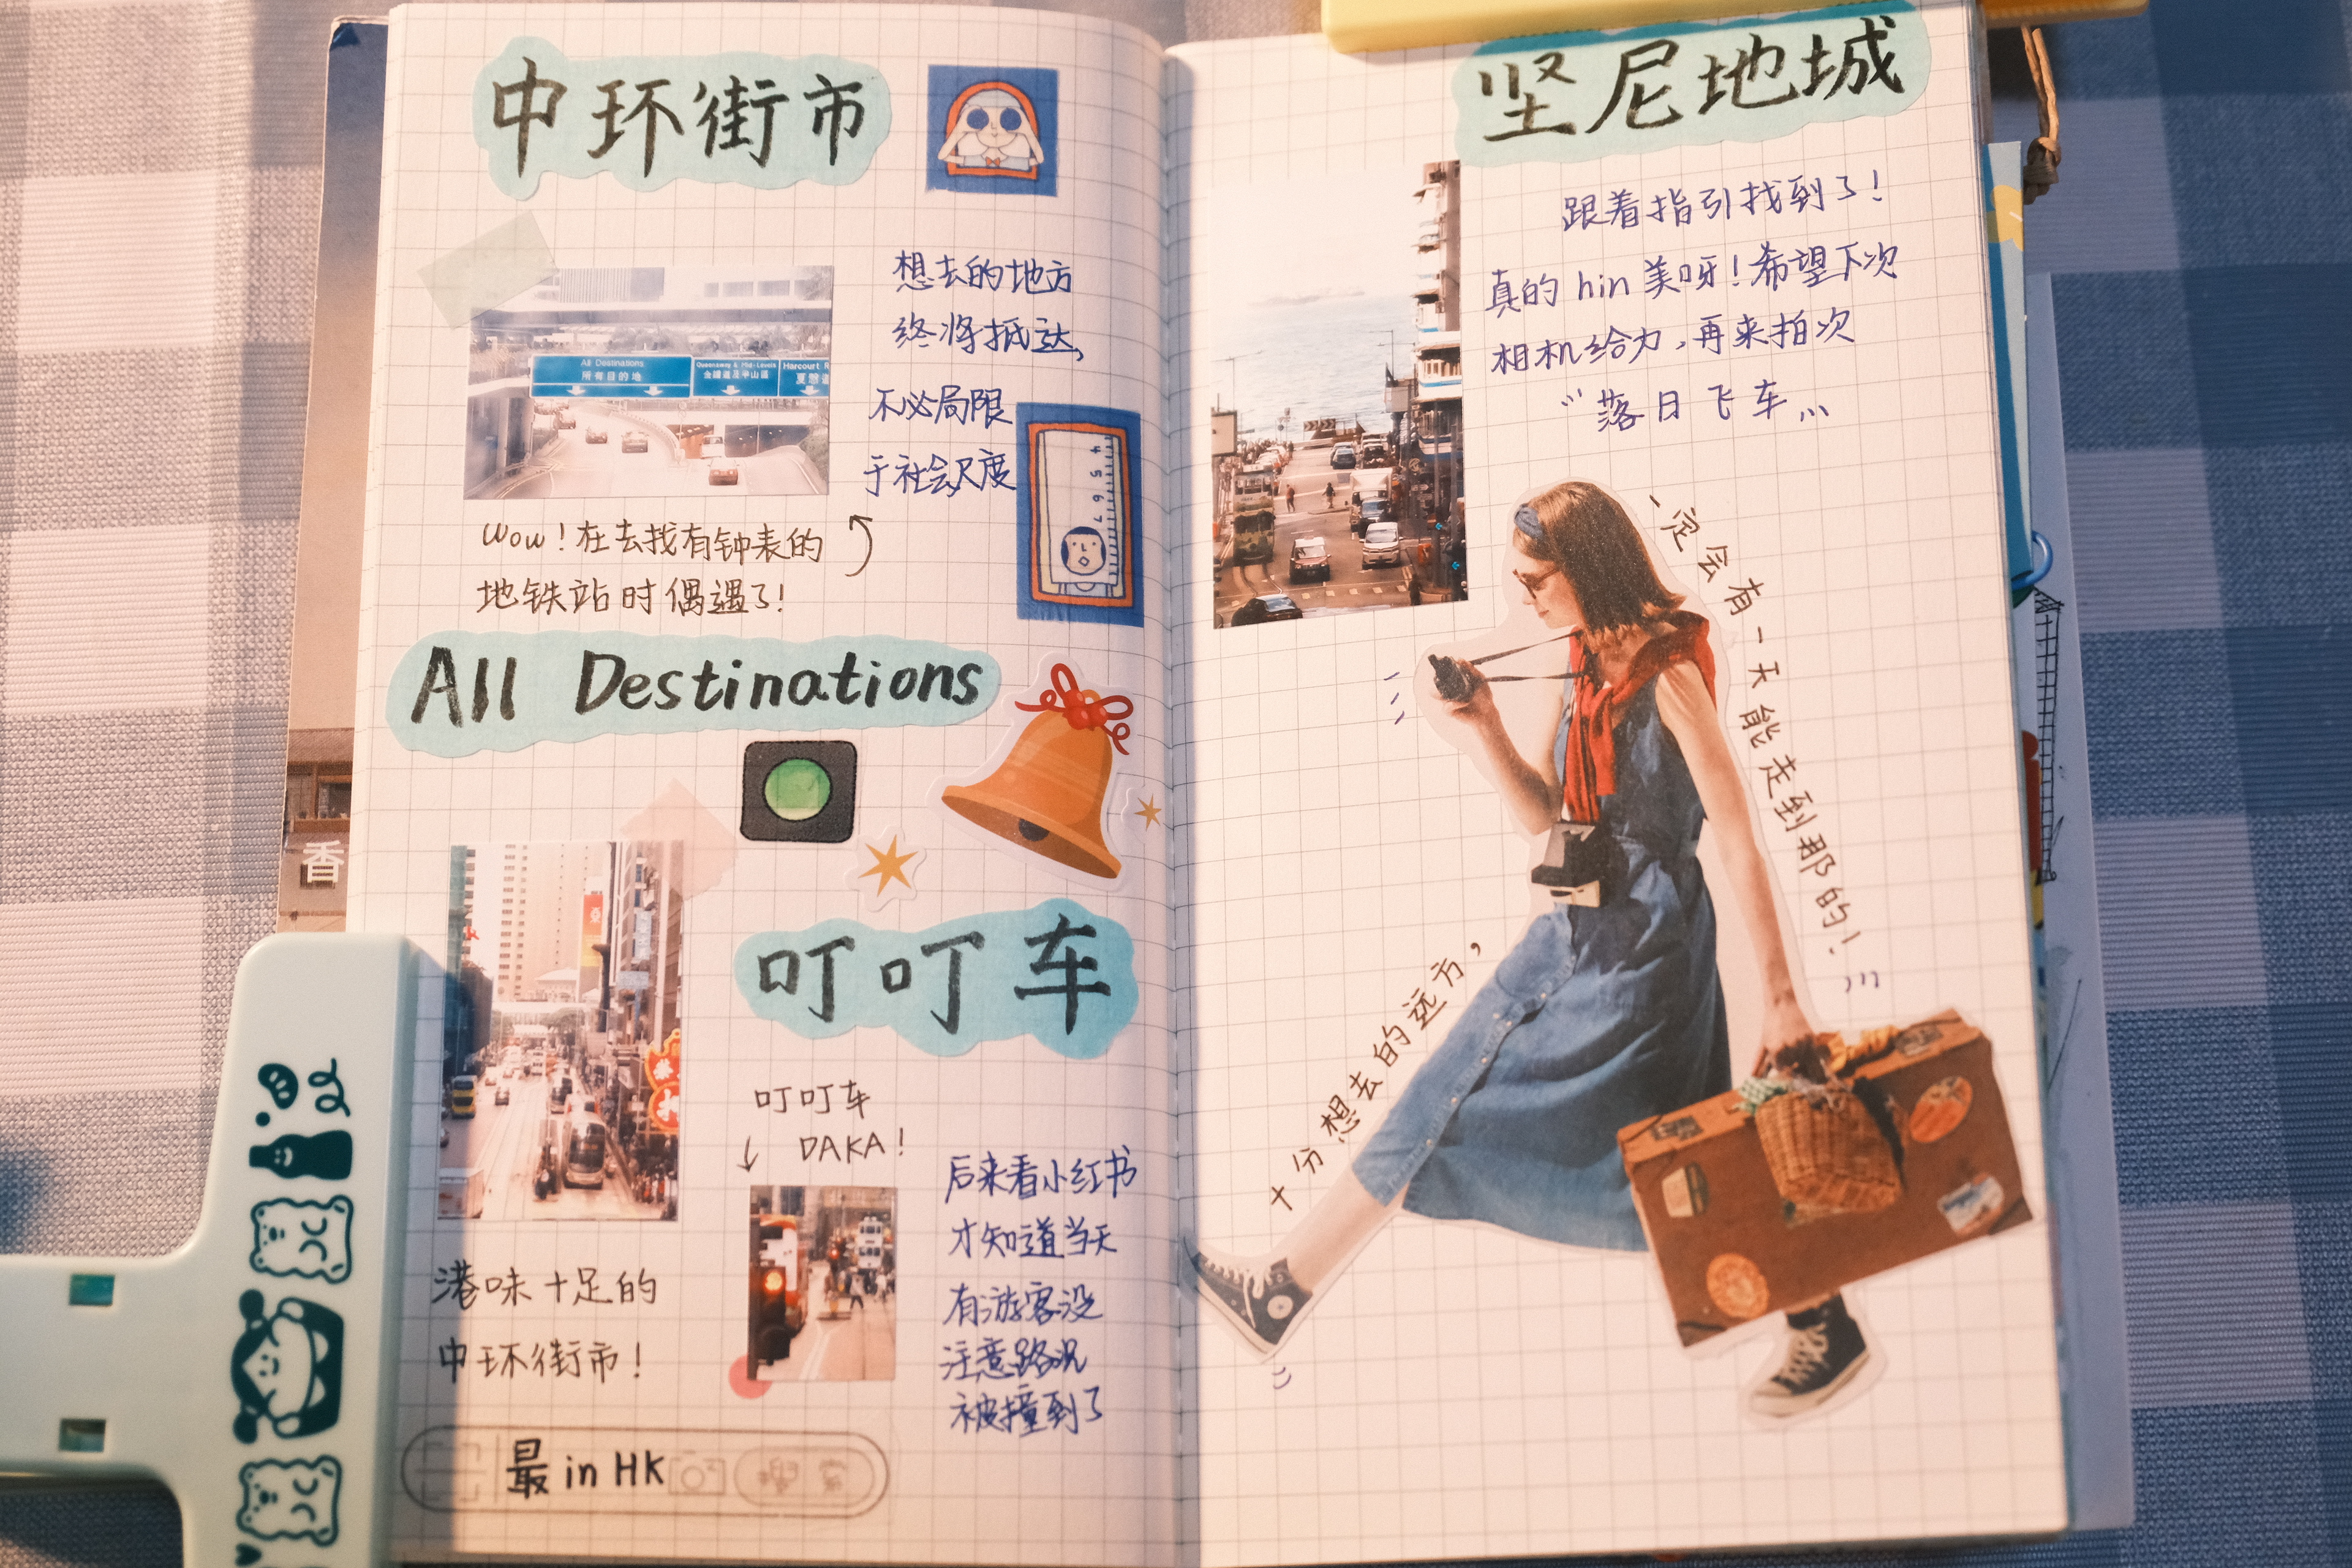 中环街市
想去的地方
终将抵达,
不必局限
于社会尺度
All Destinations
所有目的地
Queensway & Mid-Levels
金鐘道及半山區
Harcourt R
夏慤道
4 5 6 7
Wow!在去找有钟表的
地铁站时偶遇了!
All Destinations
叮叮车
叮叮车
DAKA!
后来看小红书
才知道当天
有游客没
注意路况
被撞到了
港味十足的
中环街市!
最 in HK
香
坚尼地城
跟着指引找到了!
真的 hin 美呀!希望下次
相机给力,再来拍次
"落日飞车"
十分想去的远方,
一定会有一天能走到那的!